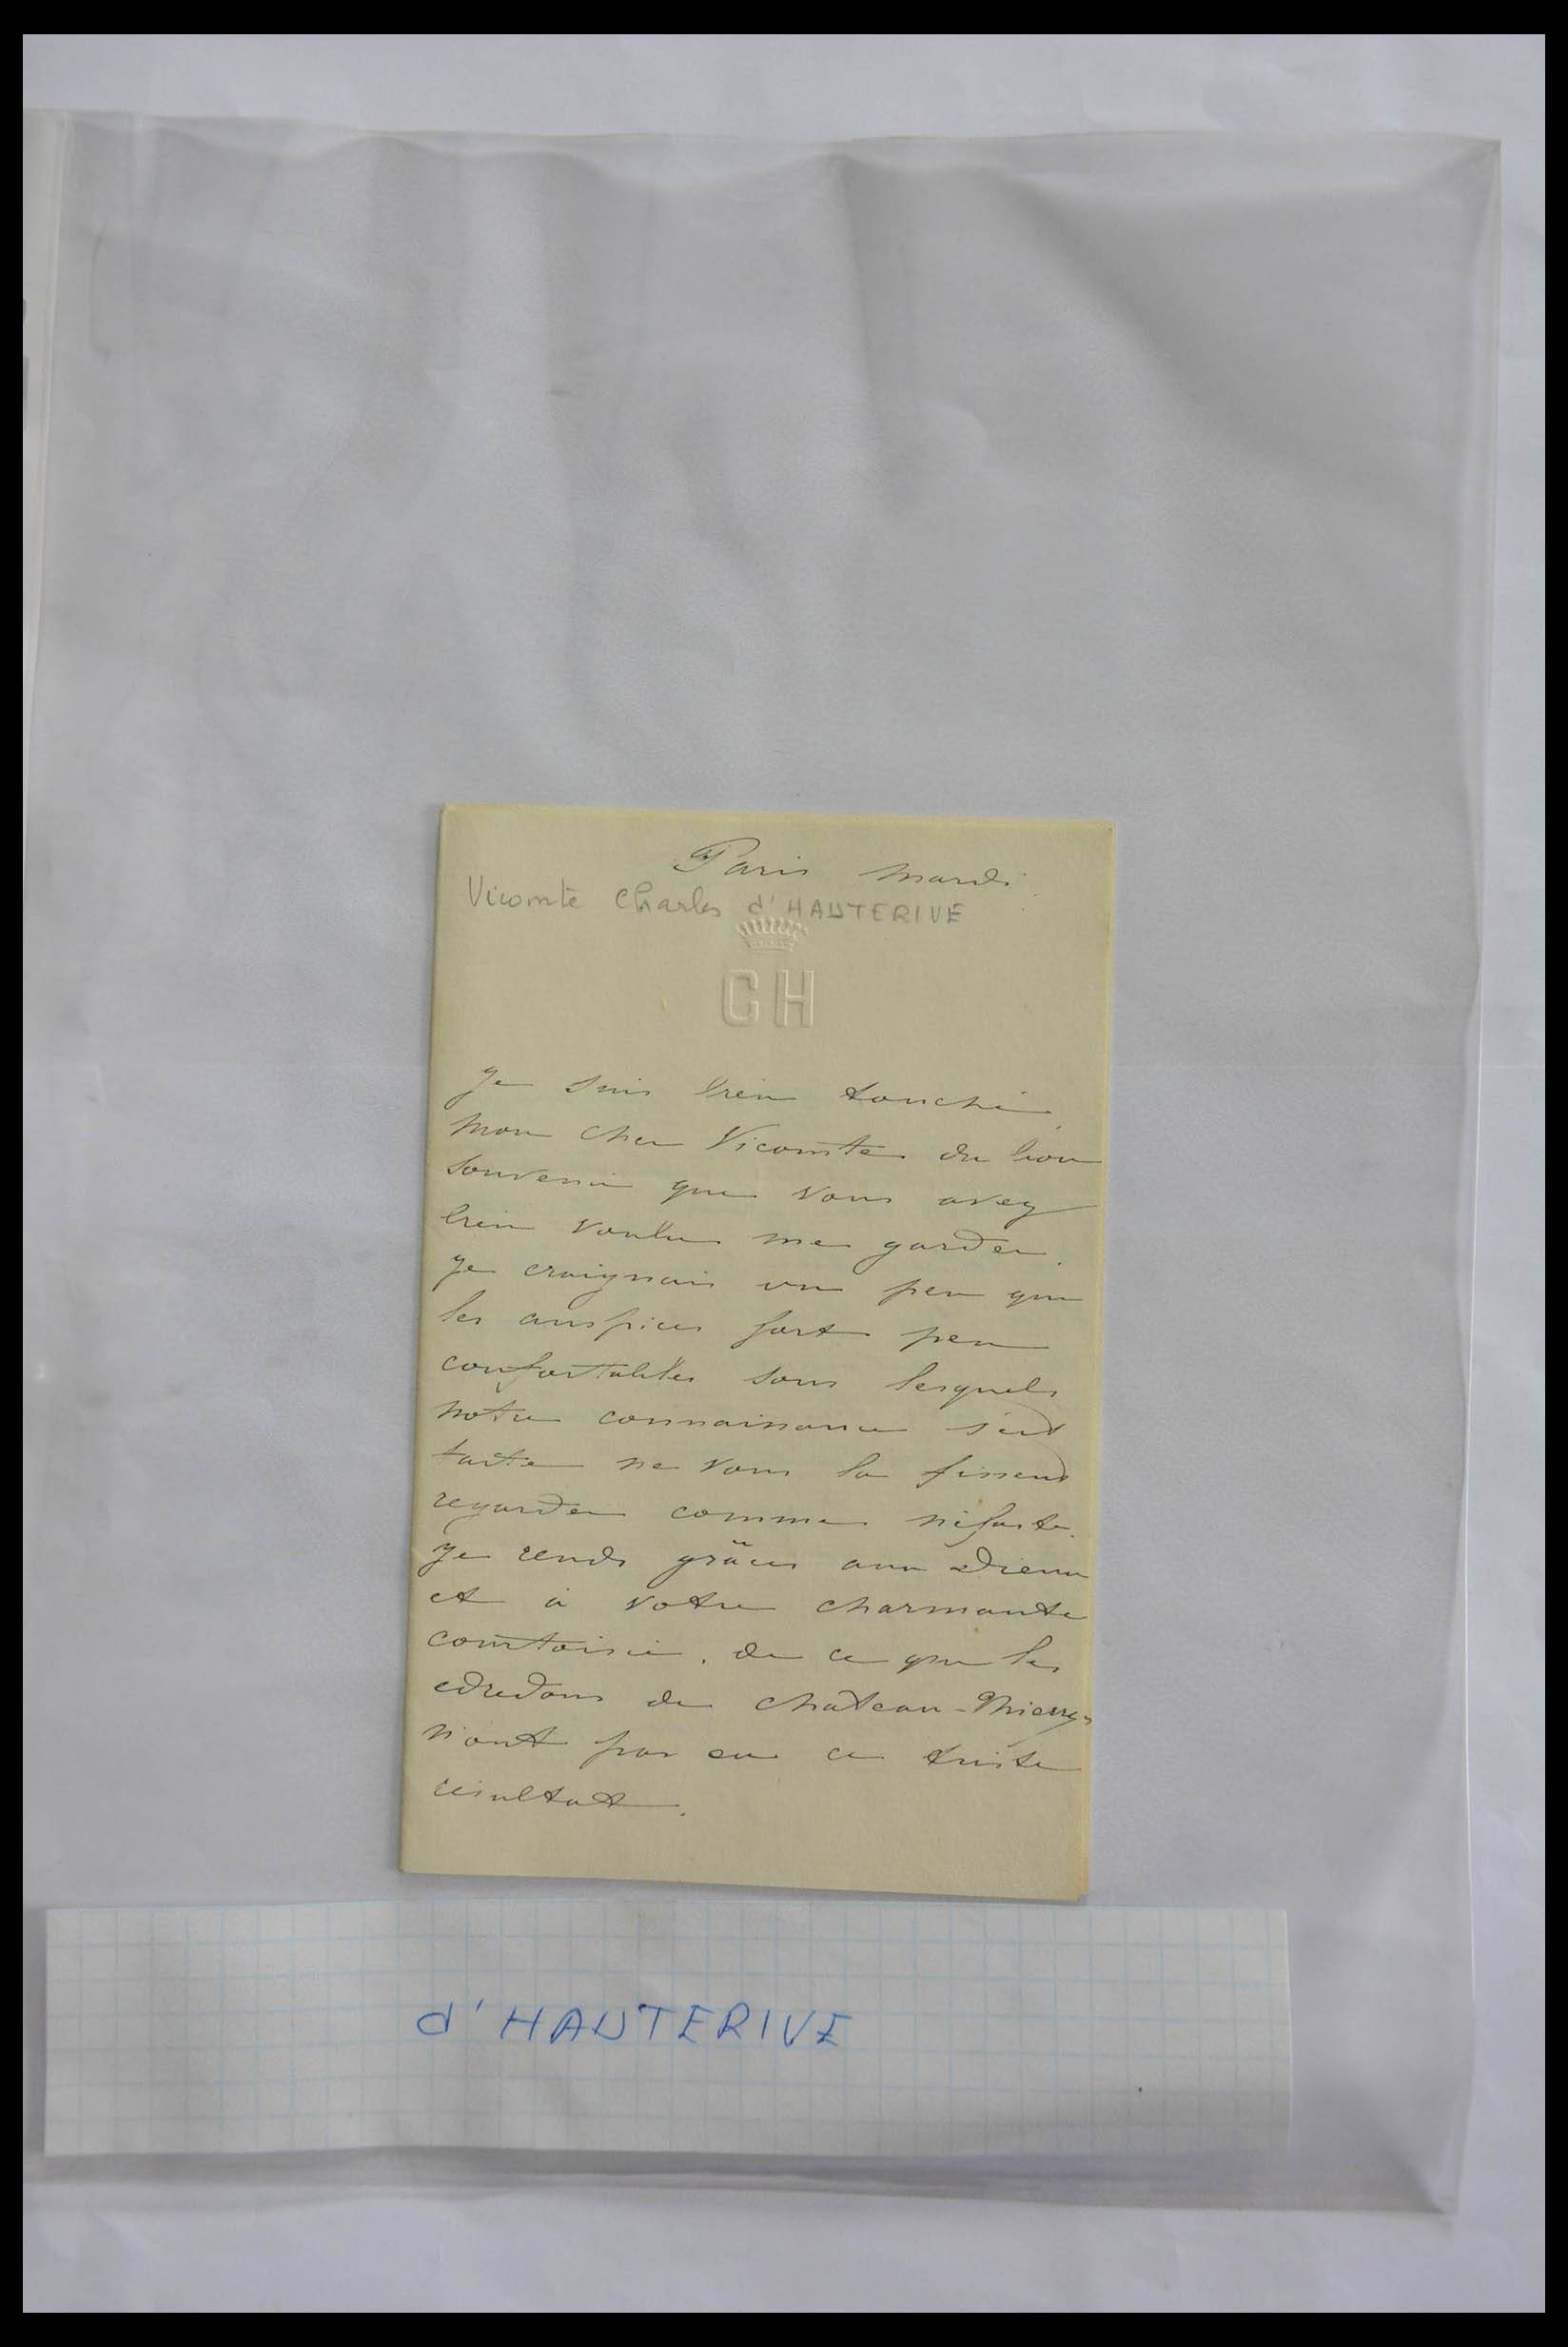 Paris mardi
Vicomte Charles d'HAUTERIVE
CH
Je suis bien touché,
mon cher Vicomte du bon
souvenir que vous avez
bien voulu me garder.
Je craignais un peu que
les auspices fort peu
confortables sous lesquels
notre connaissance s'est
faite ne vous la fissent
regarder comme néfaste.
Je rends grâces aux Dieux
et à votre charmante
courtoisie, de ce que les
edredons de Château-Thierry
n'ont pas eu ce triste
résultat.
d'HAUTERIVE